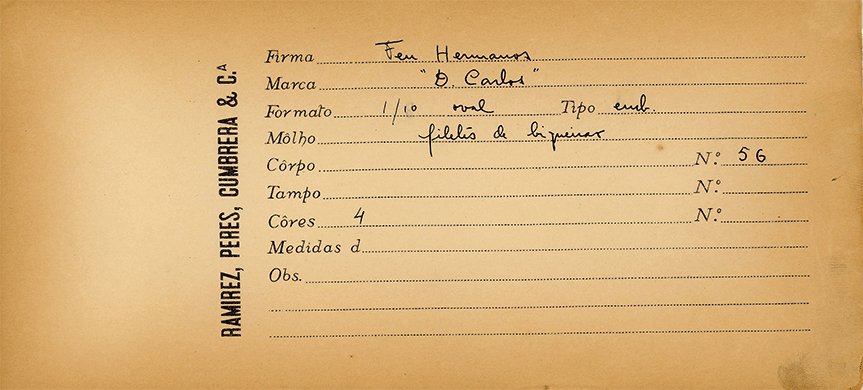 RAMIREZ, PERES, CUMBRERA & C.ª
Firma Feu Hermanos
Marca "D. Carlos"
Formato 1/10 oval Tipo emb.
Môlho filetes de biqueirar
Côrpo N.º 56
Tampo N.º
Côres 4 N.º
Medidas d
Obs.